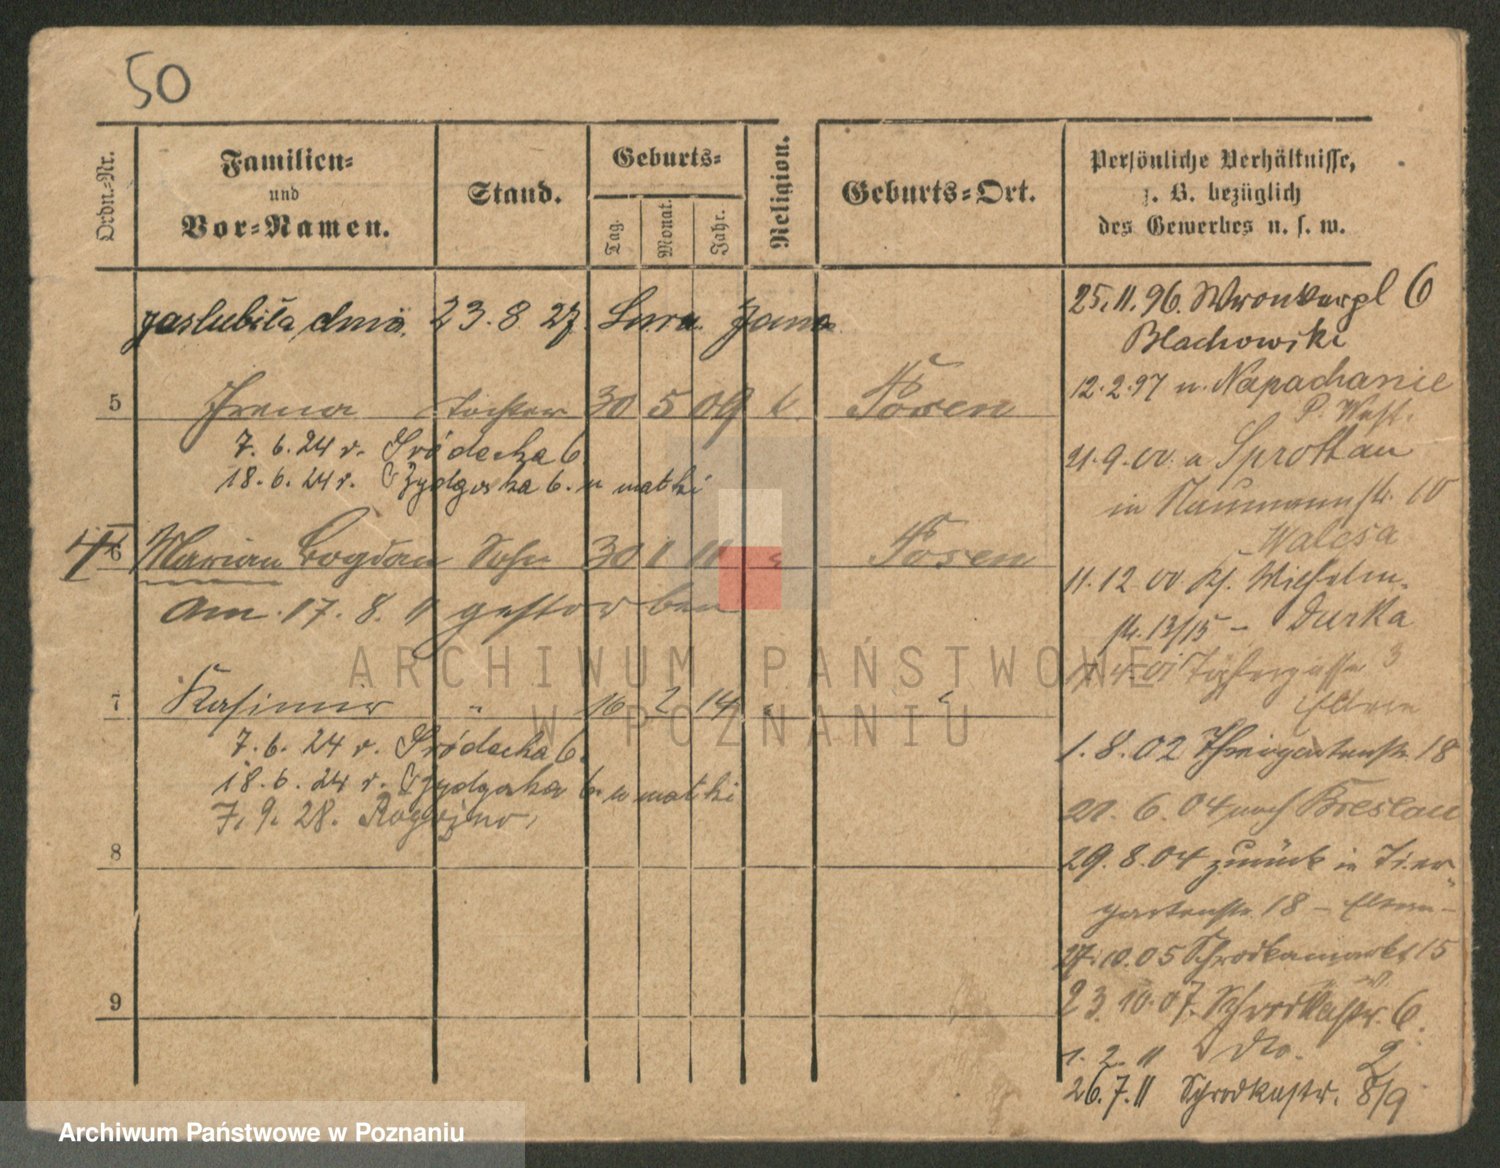 50
Ordn.-Nr.
Familien-
und
Vor-Namen.
Stand.
Geburts-
Tag.
Monat.
Jahr.
Religion.
Geburts-Ort.
Persönliche Verhältnisse,
z. B. bezüglich
des Gewerbes u. s. w.
zaślubiła dnia 23.8.27. Jana
5 Irena Tochter 30 5 09 k. Posen
7.6.24 r. Śródecka 6
18.6.24 r. Bydgoska 6. u matki
6 Marian Bogdan Sohn 30 1 11 " Posen
am 17.8.11 gestorben
7 Kasimir " 16 2 14 " "
7.6.24 r. Śródecka 6.
18.6.24 r. Bydgoska 6. u matki
7.9.28. Rogoźno,
8
9
25.11.96. Wronkerpl 6
Blachowski
12.2.97 n. Napachanie
P. West.
21.9.00. a Sprottau
in Naumannstr. 10
Walesa
11.12.00 Kl. Wilhelm-
str. 13/15 - Durka
Töpfergasse 3
Eltern
1.8.02 Thiergartenstr. 18
20.6.04 nach Breslau
29.8.04 zurück in Tier-
gartenstr. 18 - Eltern -
27.10.05 Schrodkamarkt 15
23.10.07. Schrodkastr. 6.
1.2.11 do. 2
26.7.11 Schrodkastr. 8/9
ARCHIWUM PAŃSTWOWE
W POZNANIU
Archiwum Państwowe w Poznaniu